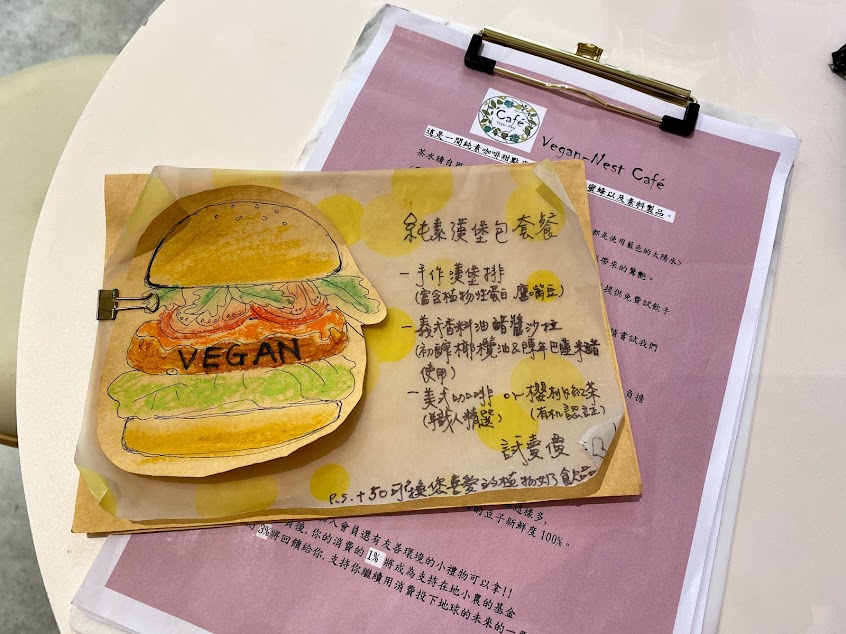 Café
Vegan-Nest Café
這是一間純素咖啡甜點
蜜蜂以及素料製品。
茶水請自用
都是使用藍色的太陽水>
帶來的驚艷。
提供免費試飲手
請嘗試我們
負擔
VEGAN
純素漢堡包套餐
一手作漢堡排
(富含植物性蛋白 鷹嘴豆)
一義式香料油醋醬沙拉
(初榨橄欖油&陳年巴薩米醋
使用)
一美式咖啡 or 櫻桃紅茶
(職人精選) (有机認証)
試賣價
P.S. +50可換您喜愛的植物奶飲品
這樣多,
豆子新鮮度100%。
入會員還有友善環境的小禮物可以拿!!
後,你的消費的1%將成為支持在地小農的基金
3%將回饋給你,支持你繼續用消費投下地球的未來的一